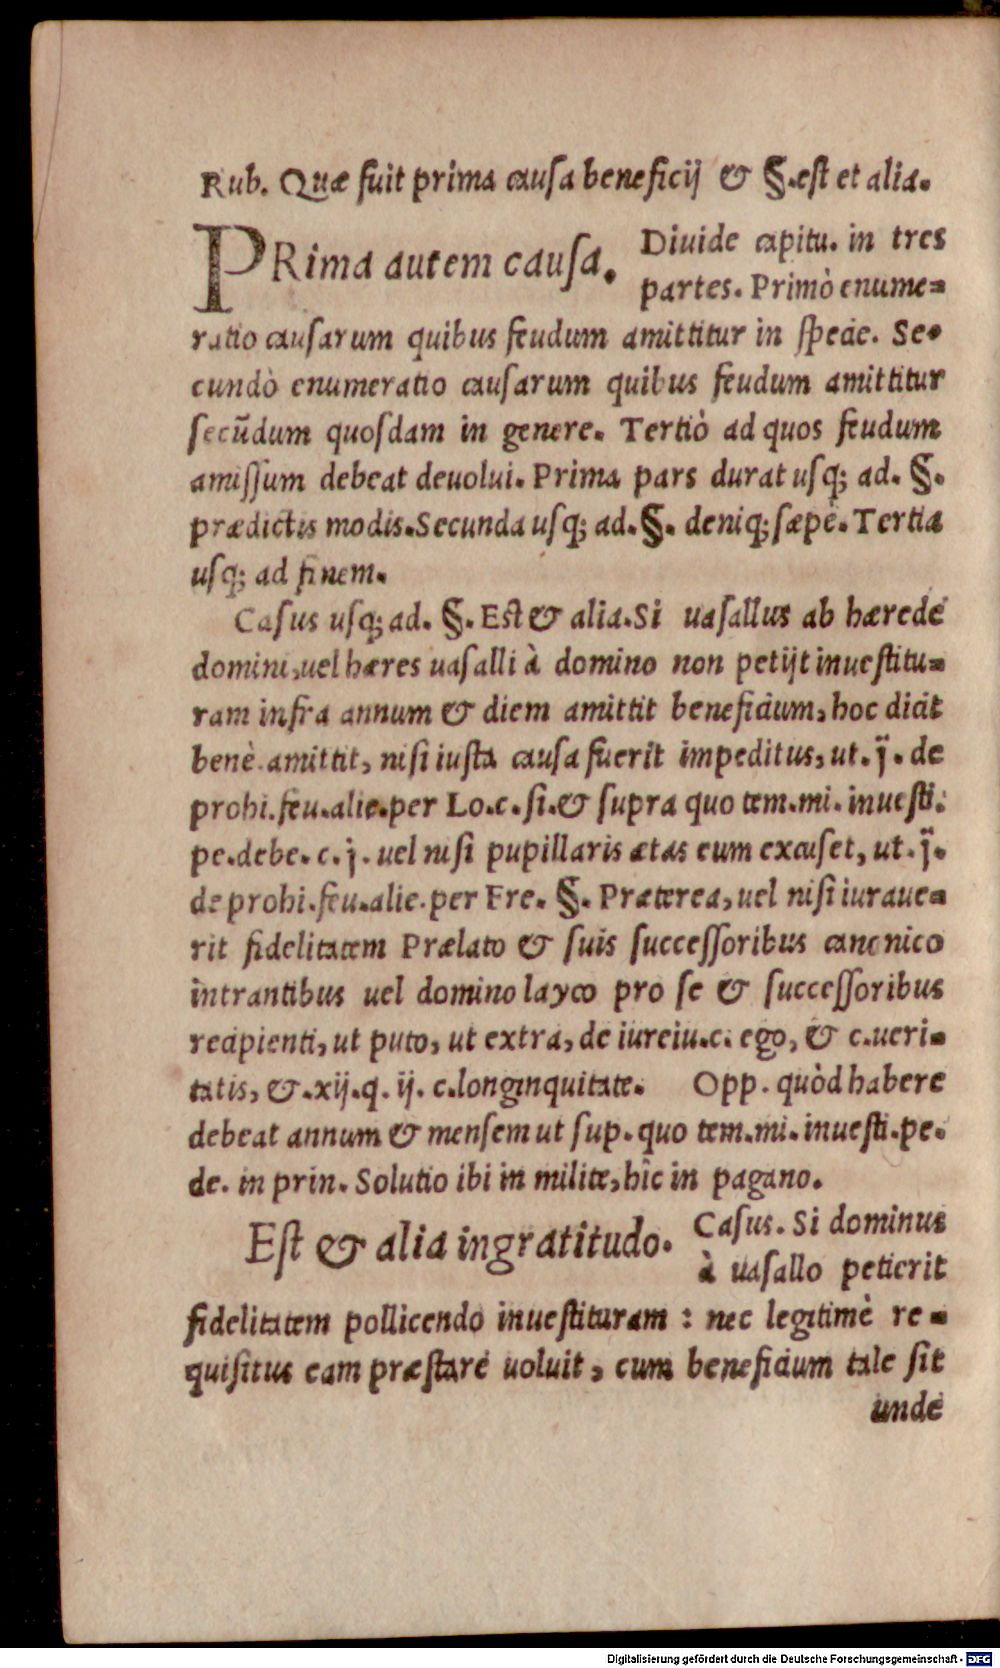 Rub. Quæ fuit prima causa beneficij & §.est et alia.
PRima autem causa. Diuide capitu. in tres
partes. Primò enume=
ratio causarum quibus feudum amittitur in specie. Se=
cundò enumeratio causarum quibus feudum amittitur
secũdum quosdam in genere. Tertiò ad quos feudum
amissum debeat deuolui. Prima pars durat usq; ad. §.
prædictis modis. Secunda usq; ad. §. deniq; sæpè. Tertia
usq; ad finem.
Casus usq; ad. §. Est & alia. Si uasallus ab hærede
domini, uel hæres uasalli à domino non petijt inuestitu=
ram infra annum & diem amittit beneficium, hoc dicit
benè amittit, nisi iusta causa fuerit impeditus, ut. j̈. de
prohi.feu.alie.per Lo.c.si.& supra quo tem.mi.inuesti.
pe.debe.c.j. uel nisi pupillaris ætas eum excuset, ut. j̈.
de prohi.feu.alie.per Fre. §. Præterea, uel nisi iuraue=
rit fidelitatem Prælato & suis successoribus canonico
intrantibus uel domino layco pro se & successoribus
recipienti, ut puto, ut extra, de iureiu.c. ego, & c.ueri=
tatis, &.xij.q. ij. c.longinquitate. Opp. quòd habere
debeat annum & mensem ut sup. quo tem.mi.inuesti.pe.
de. in prin. Solutio ibi in milite, hîc in pagano.
Est & alia ingratitudo. Casus. Si dominus
à uasallo petierit
fidelitatem pollicendo inuestituram : nec legitimè re=
quisitus eam præstare uoluit, cum beneficium tale sit
unde
Digitalisierung gefördert durch die Deutsche Forschungsgemeinschaft - DFG